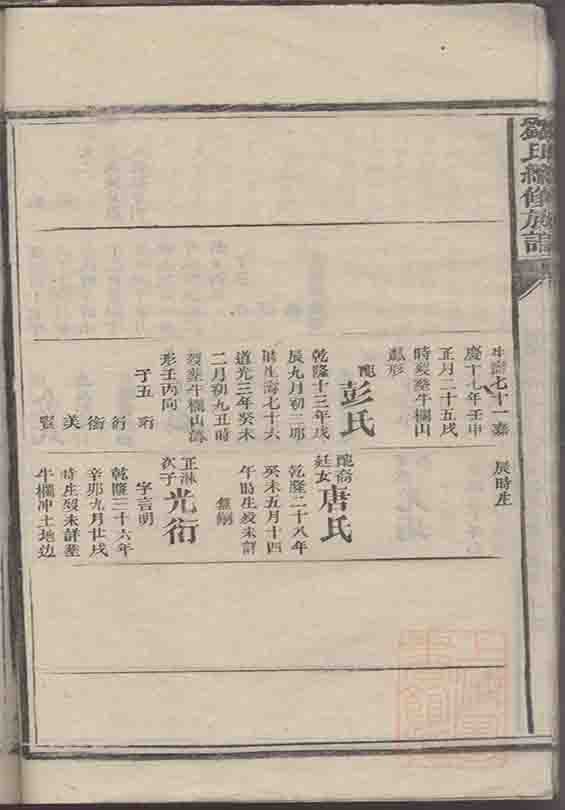 劉氏續修族譜
生壽七十一嘉
慶十七年壬申
正月二十五戌
時歿塟牛欄山
瓢形
配彭氏
乾隆十三年戊
辰九月初二卯
時生壽七十六
道光三年癸未
二月初九丑時
歿塟牛欄山瓢
形壬丙向
子五 珩
衍
衡
美
辰時生
配裔
廷女唐氏
乾隆二十八年
癸未五月十四
午時生歿未詳
無嗣
正淋
次子光衍
字言明
乾隆三十六年
辛卯九月廿戌
時生歿未詳塟
牛欄冲土地边